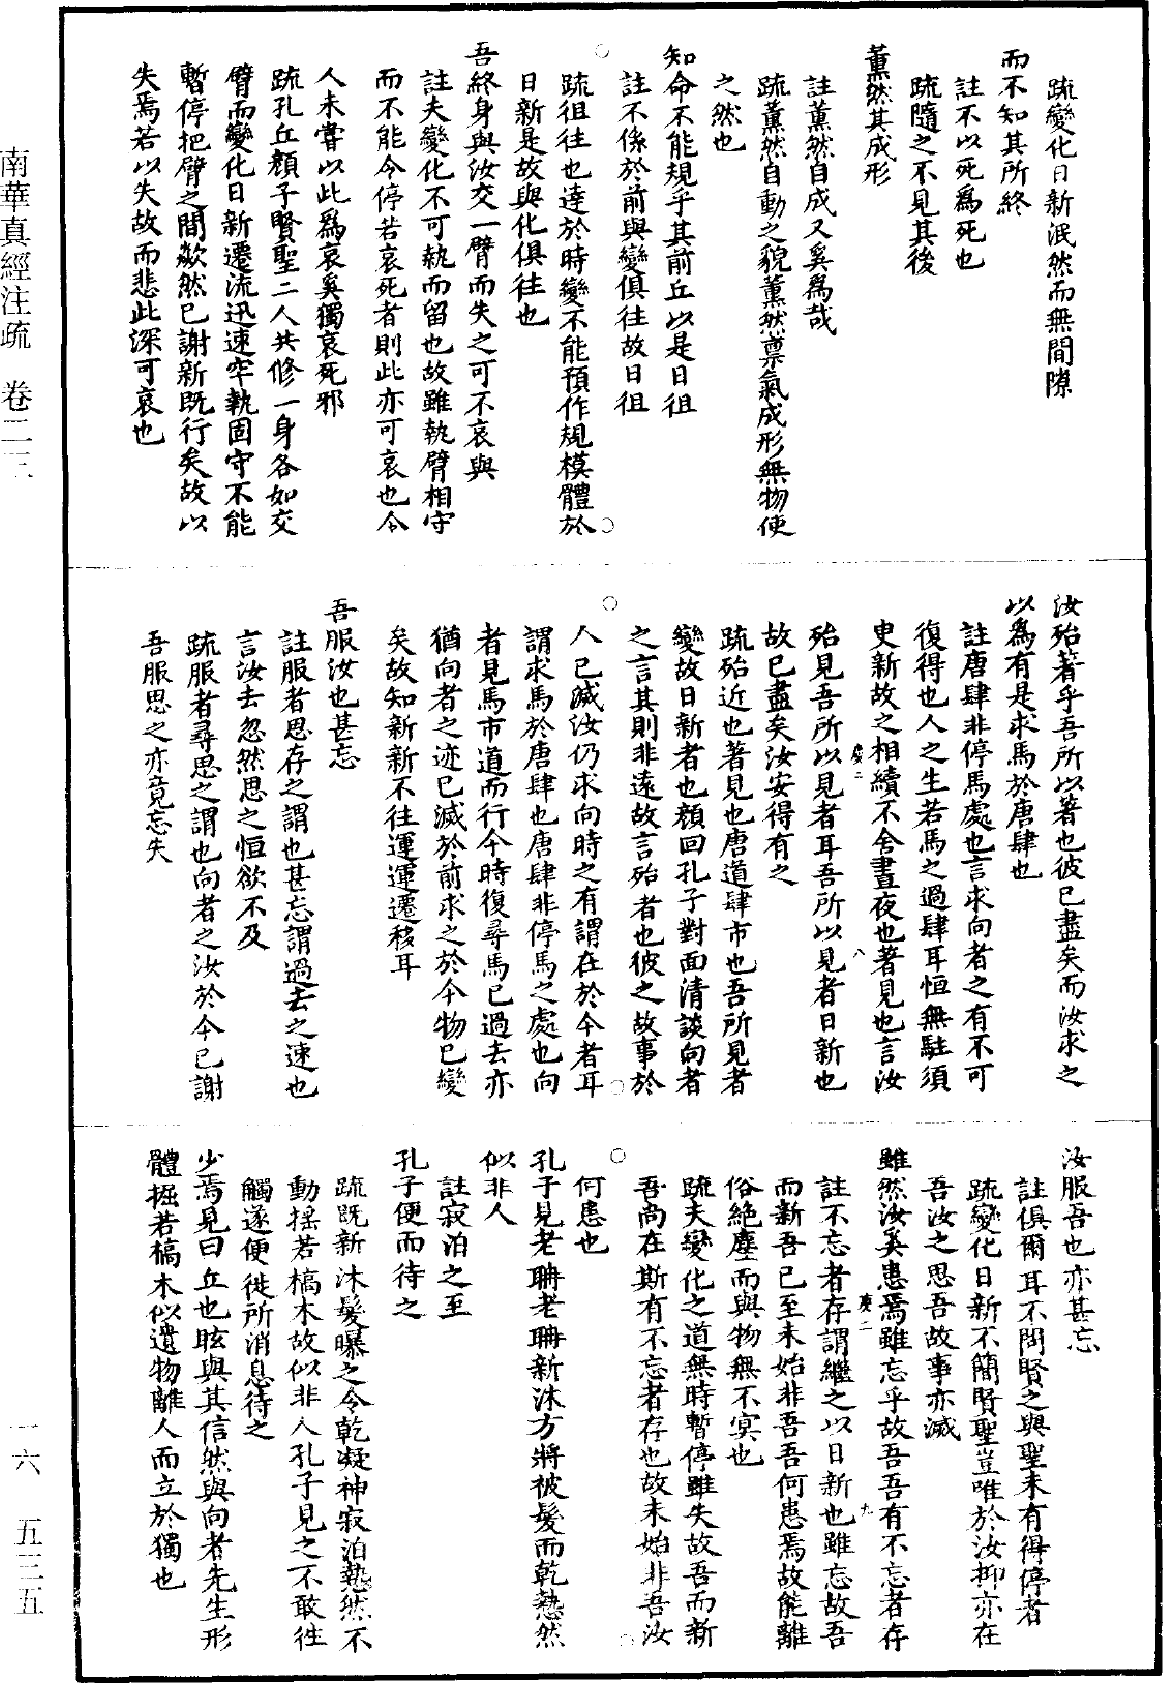 疏變化日新泯然而無間隙
而不知其所終
註不以死爲死也
疏隨之不見其後
薰然其成形
註薰然自成又奚爲哉
疏薰然自動之貌薰然稟氣成形無物使
之然也
知命不能規乎其前丘以是日徂
註不係於前與變俱往故日徂
疏徂往也達於時變不能預作規模體於
日新是故與化俱往也
吾終身與汝交一臂而失之可不哀與
註夫變化不可執而留也故雖執臂相守
而不能令停若哀死者則此亦可哀也今
人未嘗以此爲哀奚獨哀死邪
疏孔丘顏子賢聖二人共修一身各如交
臂而變化日新遷流迅速牢執固守不能
暫停把臂之間欻然已謝新既行矣故以
失焉若以失故而悲此深可哀也
汝殆著乎吾所以著也彼已盡矣而汝求之
以爲有是求馬於唐肆也
註唐肆非停馬處也言求向者之有不可
復得也人之生若馬之過肆耳恒無駐須
臾新故之相續不舍晝夜也著見也言汝
殆見吾所以見者耳吾所以見者日新也
故已盡矣汝安得有之
疏殆近也著見也唐道肆市也吾所見者
變故日新者也顏回孔子對面清談向者
之言其則非遠故言殆者也彼之故事於
人已滅汝仍求向時之有謂在於今者耳
謂求馬於唐肆也唐肆非停馬之處也向
者見馬市道而行今時復尋馬已過去亦
猶向者之迹已滅於前求之於今物已變
矣故知新新不往運運遷移耳
吾服汝也甚忘
註服者思存之謂也甚忘謂過去之速也
言汝去忽然思之恒欲不及
疏服者尋思之謂也向者之汝於今已謝
吾服思之亦竟忘失
汝服吾也亦甚忘
註俱爾耳不問賢之與聖未有得停者
疏變化日新不簡賢聖豈唯於汝抑亦在
吾汝之思吾故事亦滅
雖然汝奚患焉雖忘乎故吾吾有不忘者存
註不忘者存謂繼之以日新也雖忘故吾
而新吾已至未始非吾吾何患焉故能離
俗絶塵而與物無不冥也
疏夫變化之道無時暫停雖失故吾而新
吾尚在斯有不忘者存也故未始非吾汝
何患也
孔子見老聃老聃新沐方將被髮而乾慹然
似非人
註寂泊之至
孔子便而待之
疏既新沐髮曝之令乾凝神寂泊慹然不
動搖若槁木故似非人孔子見之不敢往
觸遂便徙所消息待之
少焉見曰丘也眩與其信然與向者先生形
體掘若槁木似遺物離人而立於獨也
南華真經注疏　卷二三
一六　五三五
慶二
八
慶二
九